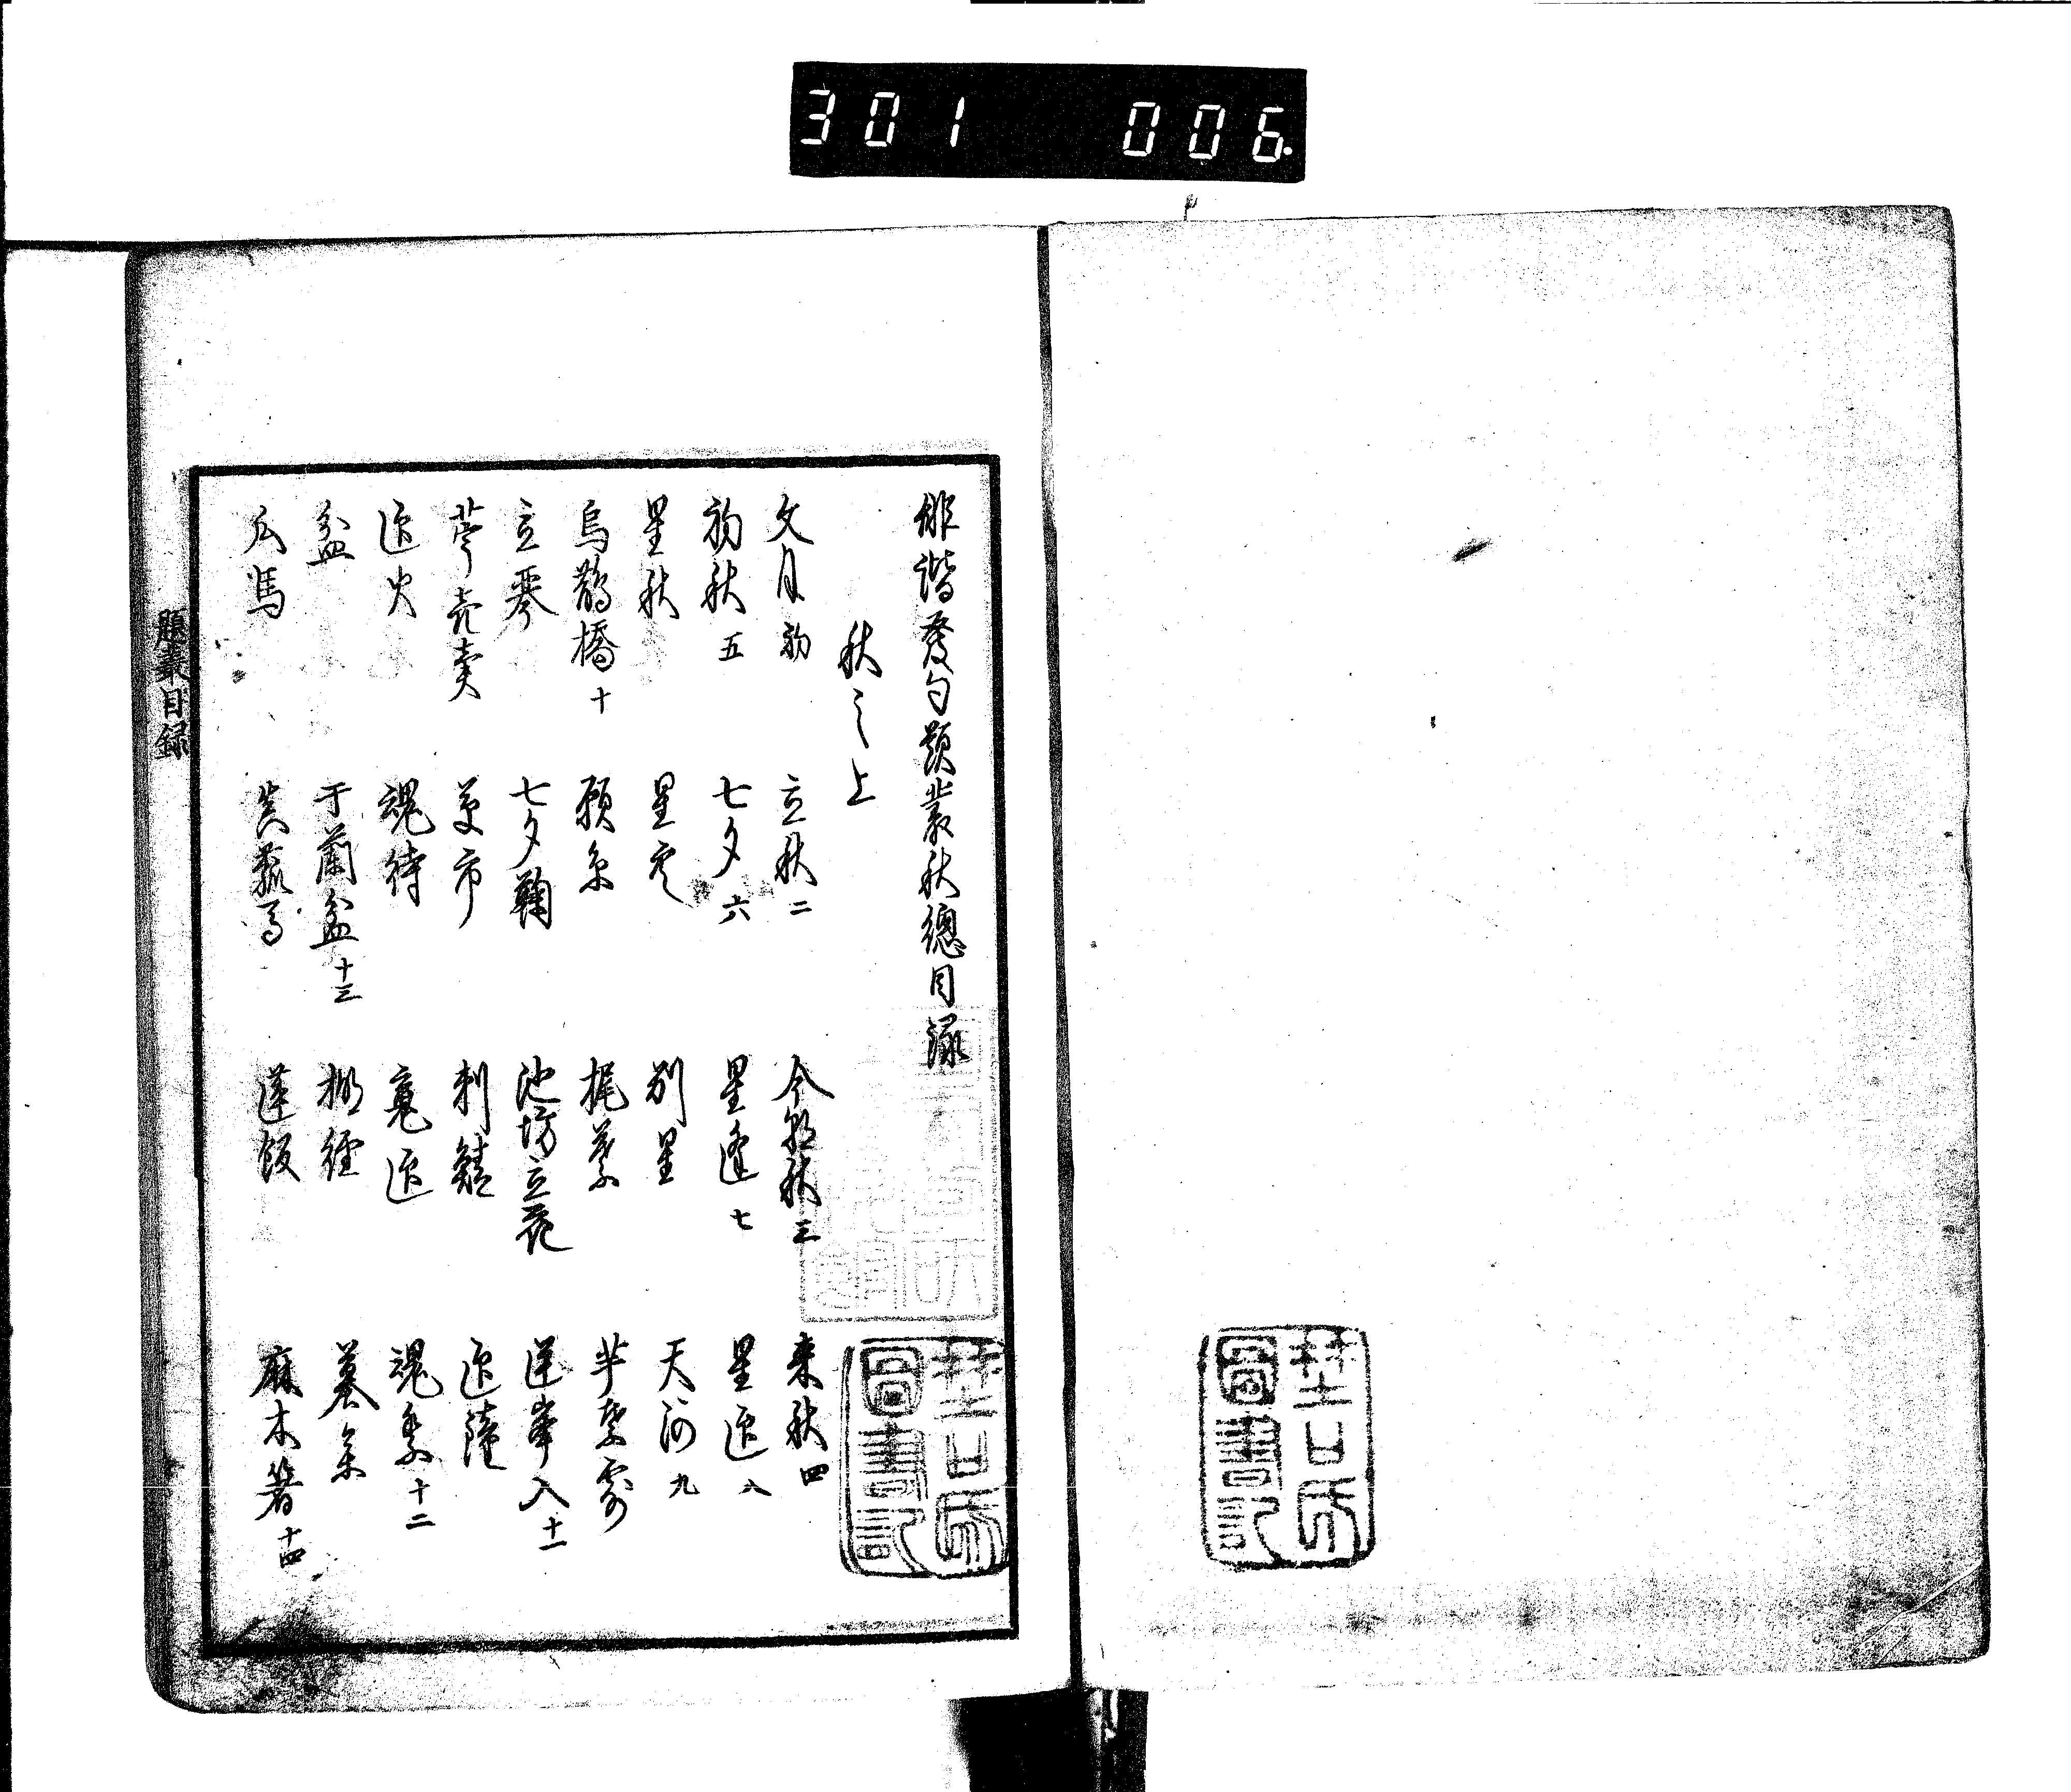 301 006.
俳諧發句題叢秋總目録
秋之上
文月 初 立秋 二 今朝秋 三 来秋 四
初秋 五 七夕 六 星逢 七 星迎 八
星秋 別星 天河 九
烏鵲橋 十 願糸 梶葉 芋葉露
立琴 七夕鞠 池坊立花 逆峯入 十一
草市 刺鯖
迎火 魂待 魂迎 魂祭 十二
盆 于蘭盆 十三 棚経 墓参
瓜馬 真菰馬 蓮飯 麻木箸 十四
題叢目録
圖書記
圖書記